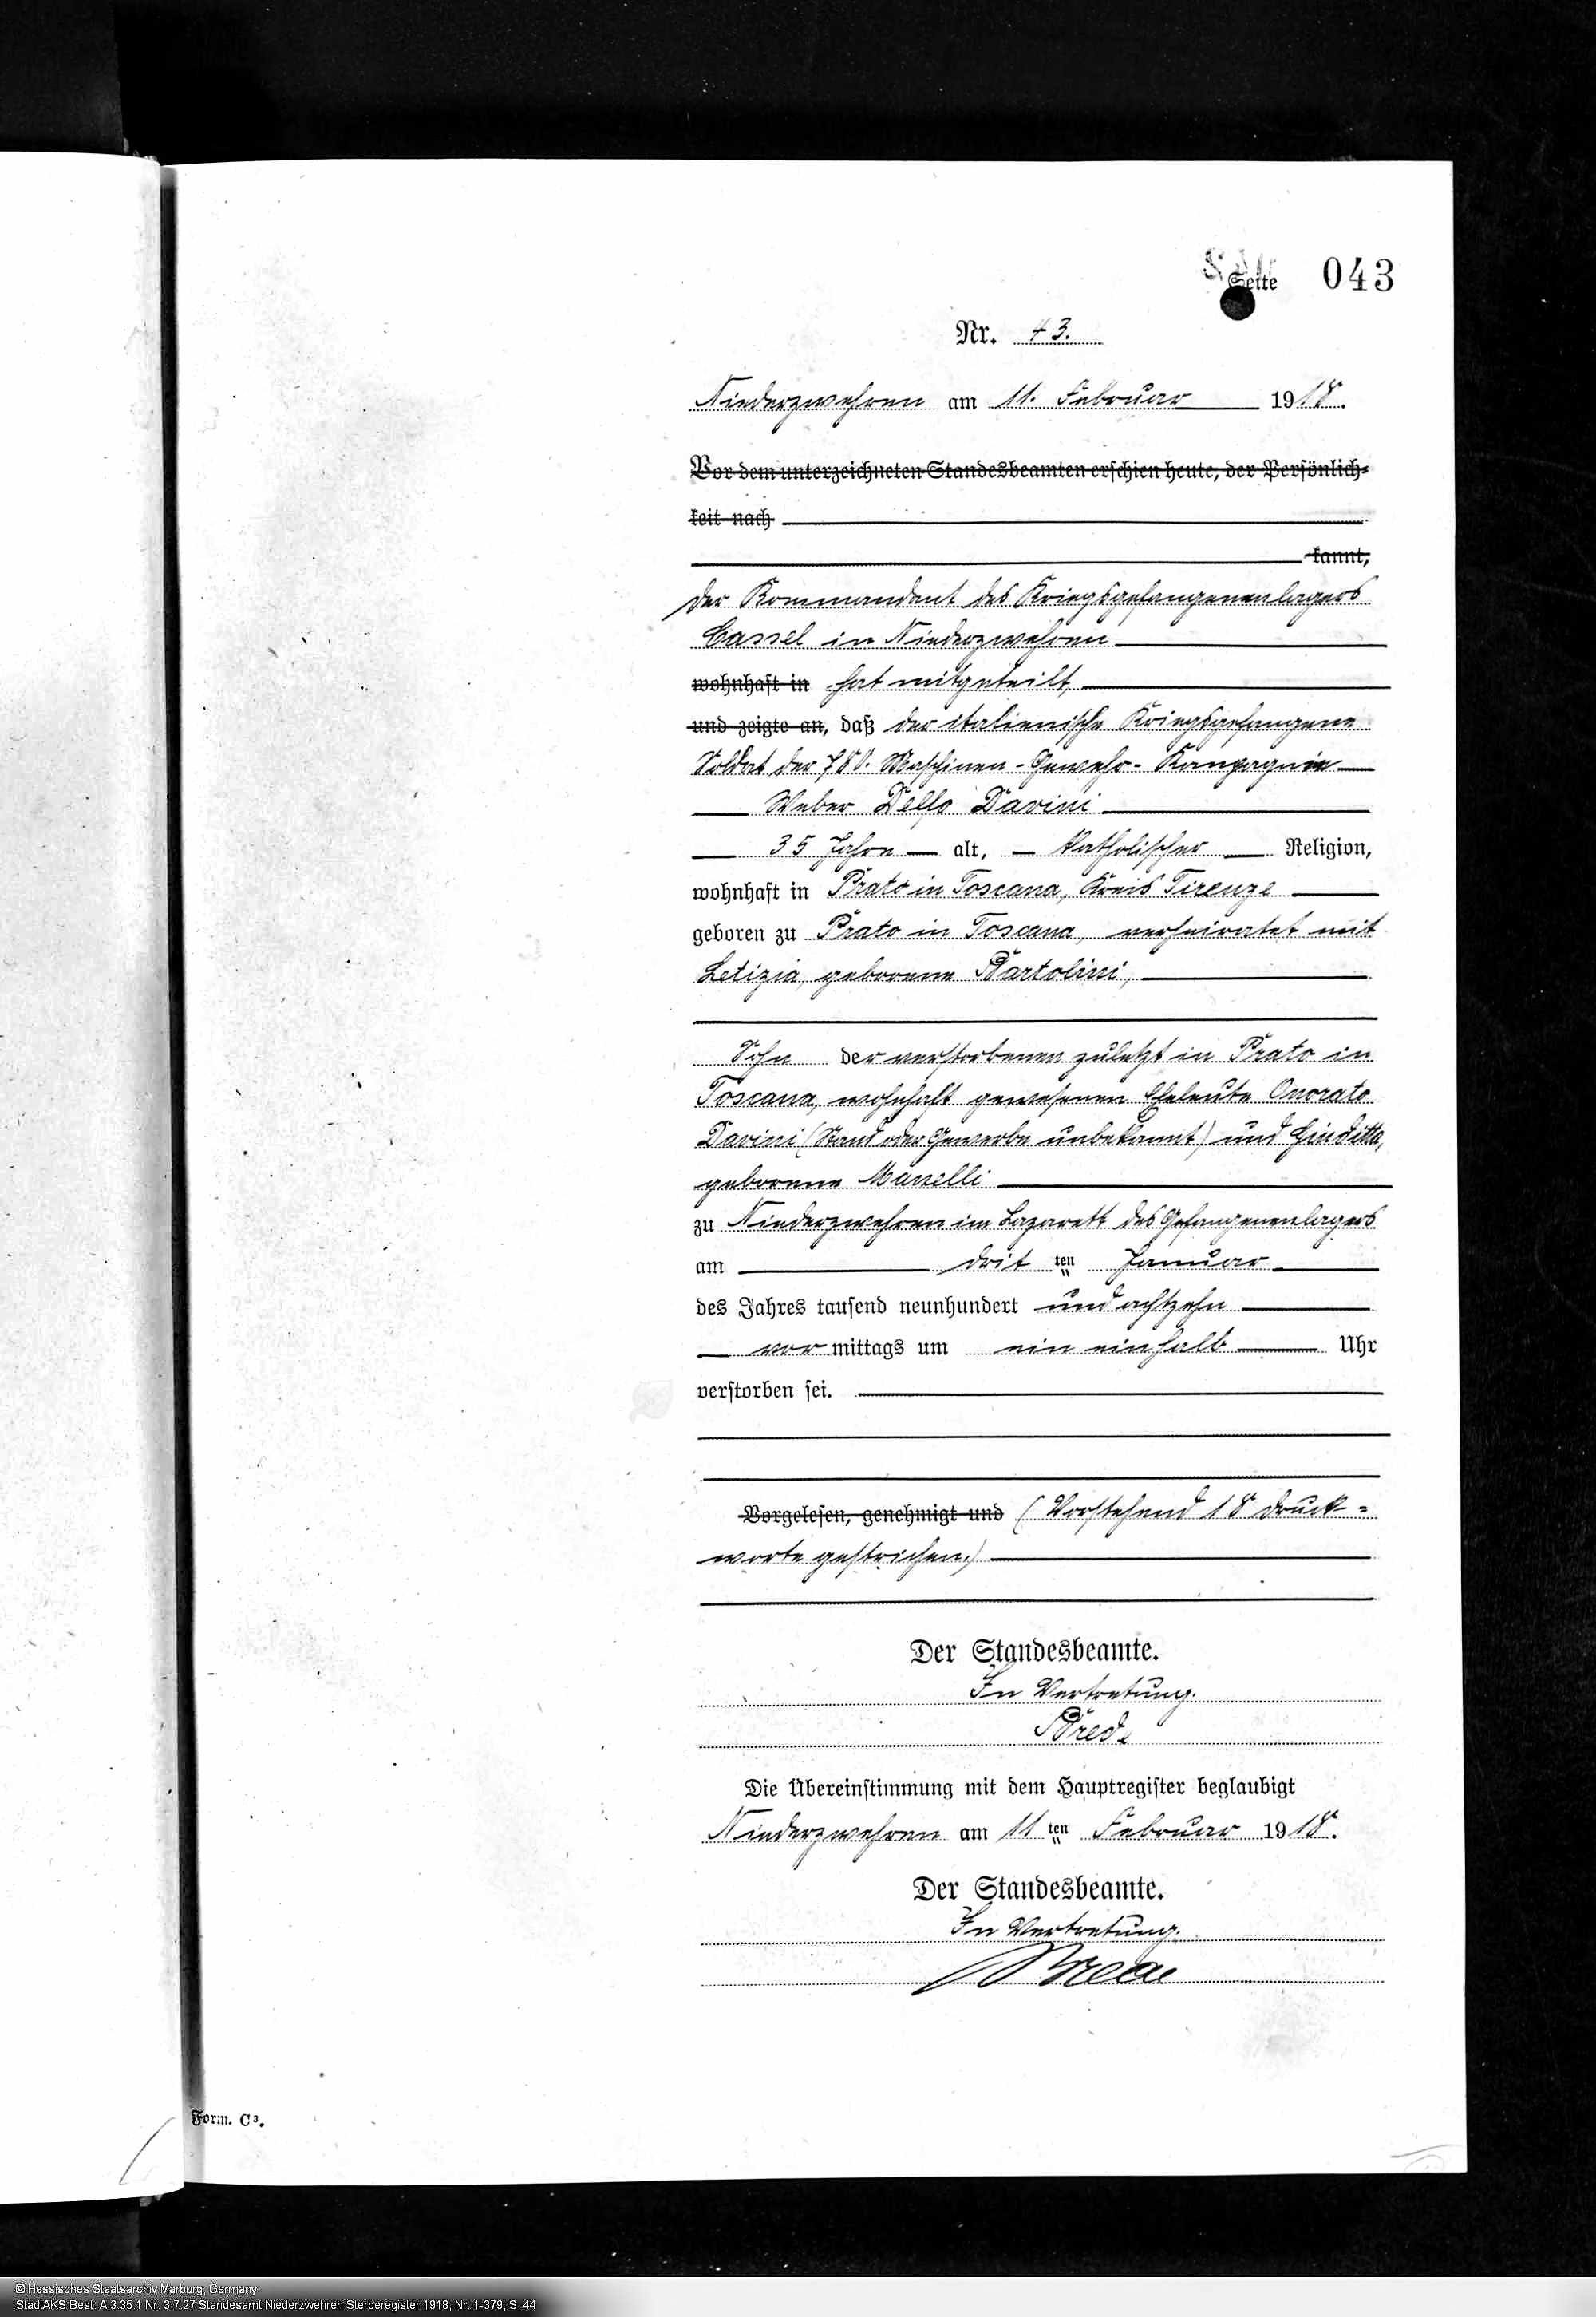 Seite 043
Nr. 43.
Niederzwehren am 11. Februar 1918.
Vor dem unterzeichneten Standesbeamten erschien heute, der Persönlich-
keit nach
kannt,
der Kommandant des Kriegsgefangenenlagers
Cassel in Niederzwehren
wohnhaft in hat mitgeteilt,
und zeigte an, daß der italienische Kriegsgefangene
Soldat der 780. Maschinen-Gewehr-Kompagnie
Weber Dello Davini
35 Jahre alt, katholischer Religion,
wohnhaft in Prato in Toscana, Kreis Firenze
geboren zu Prato in Toscana, verheiratet mit
Letizia, geborene Bartolini,
Sohn der verstorbenen zuletzt in Prato in
Toscana, wohnhaft gewesenen Eheleute Onorato
Davini (Stand oder Gewerbe unbekannt) und Giuditta,
geborene
zu Niederzwehren im Lazarett des Gefangenenlagers
am dritten Januar
des Jahres tausend neunhundert undachtzehn
vormittags um ein einhalb Uhr
verstorben sei.
Vorgelesen, genehmigt und (Vorstehend 18 Druck-
worte gestrichen.)
Der Standesbeamte.
In Vertretung.
Brede
Die Übereinstimmung mit dem Hauptregister beglaubigt
Niederzwehren am 11ten Februar 1918.
Der Standesbeamte.
In Vertretung.
Brede
Form. C³.
© Hessisches Staatsarchiv Marburg, Germany
StadtAKS Best. A 3.35.1 Nr. 3.7.27 Standesamt Niederzwehren Sterberegister 1918, Nr. 1-379, S. 44